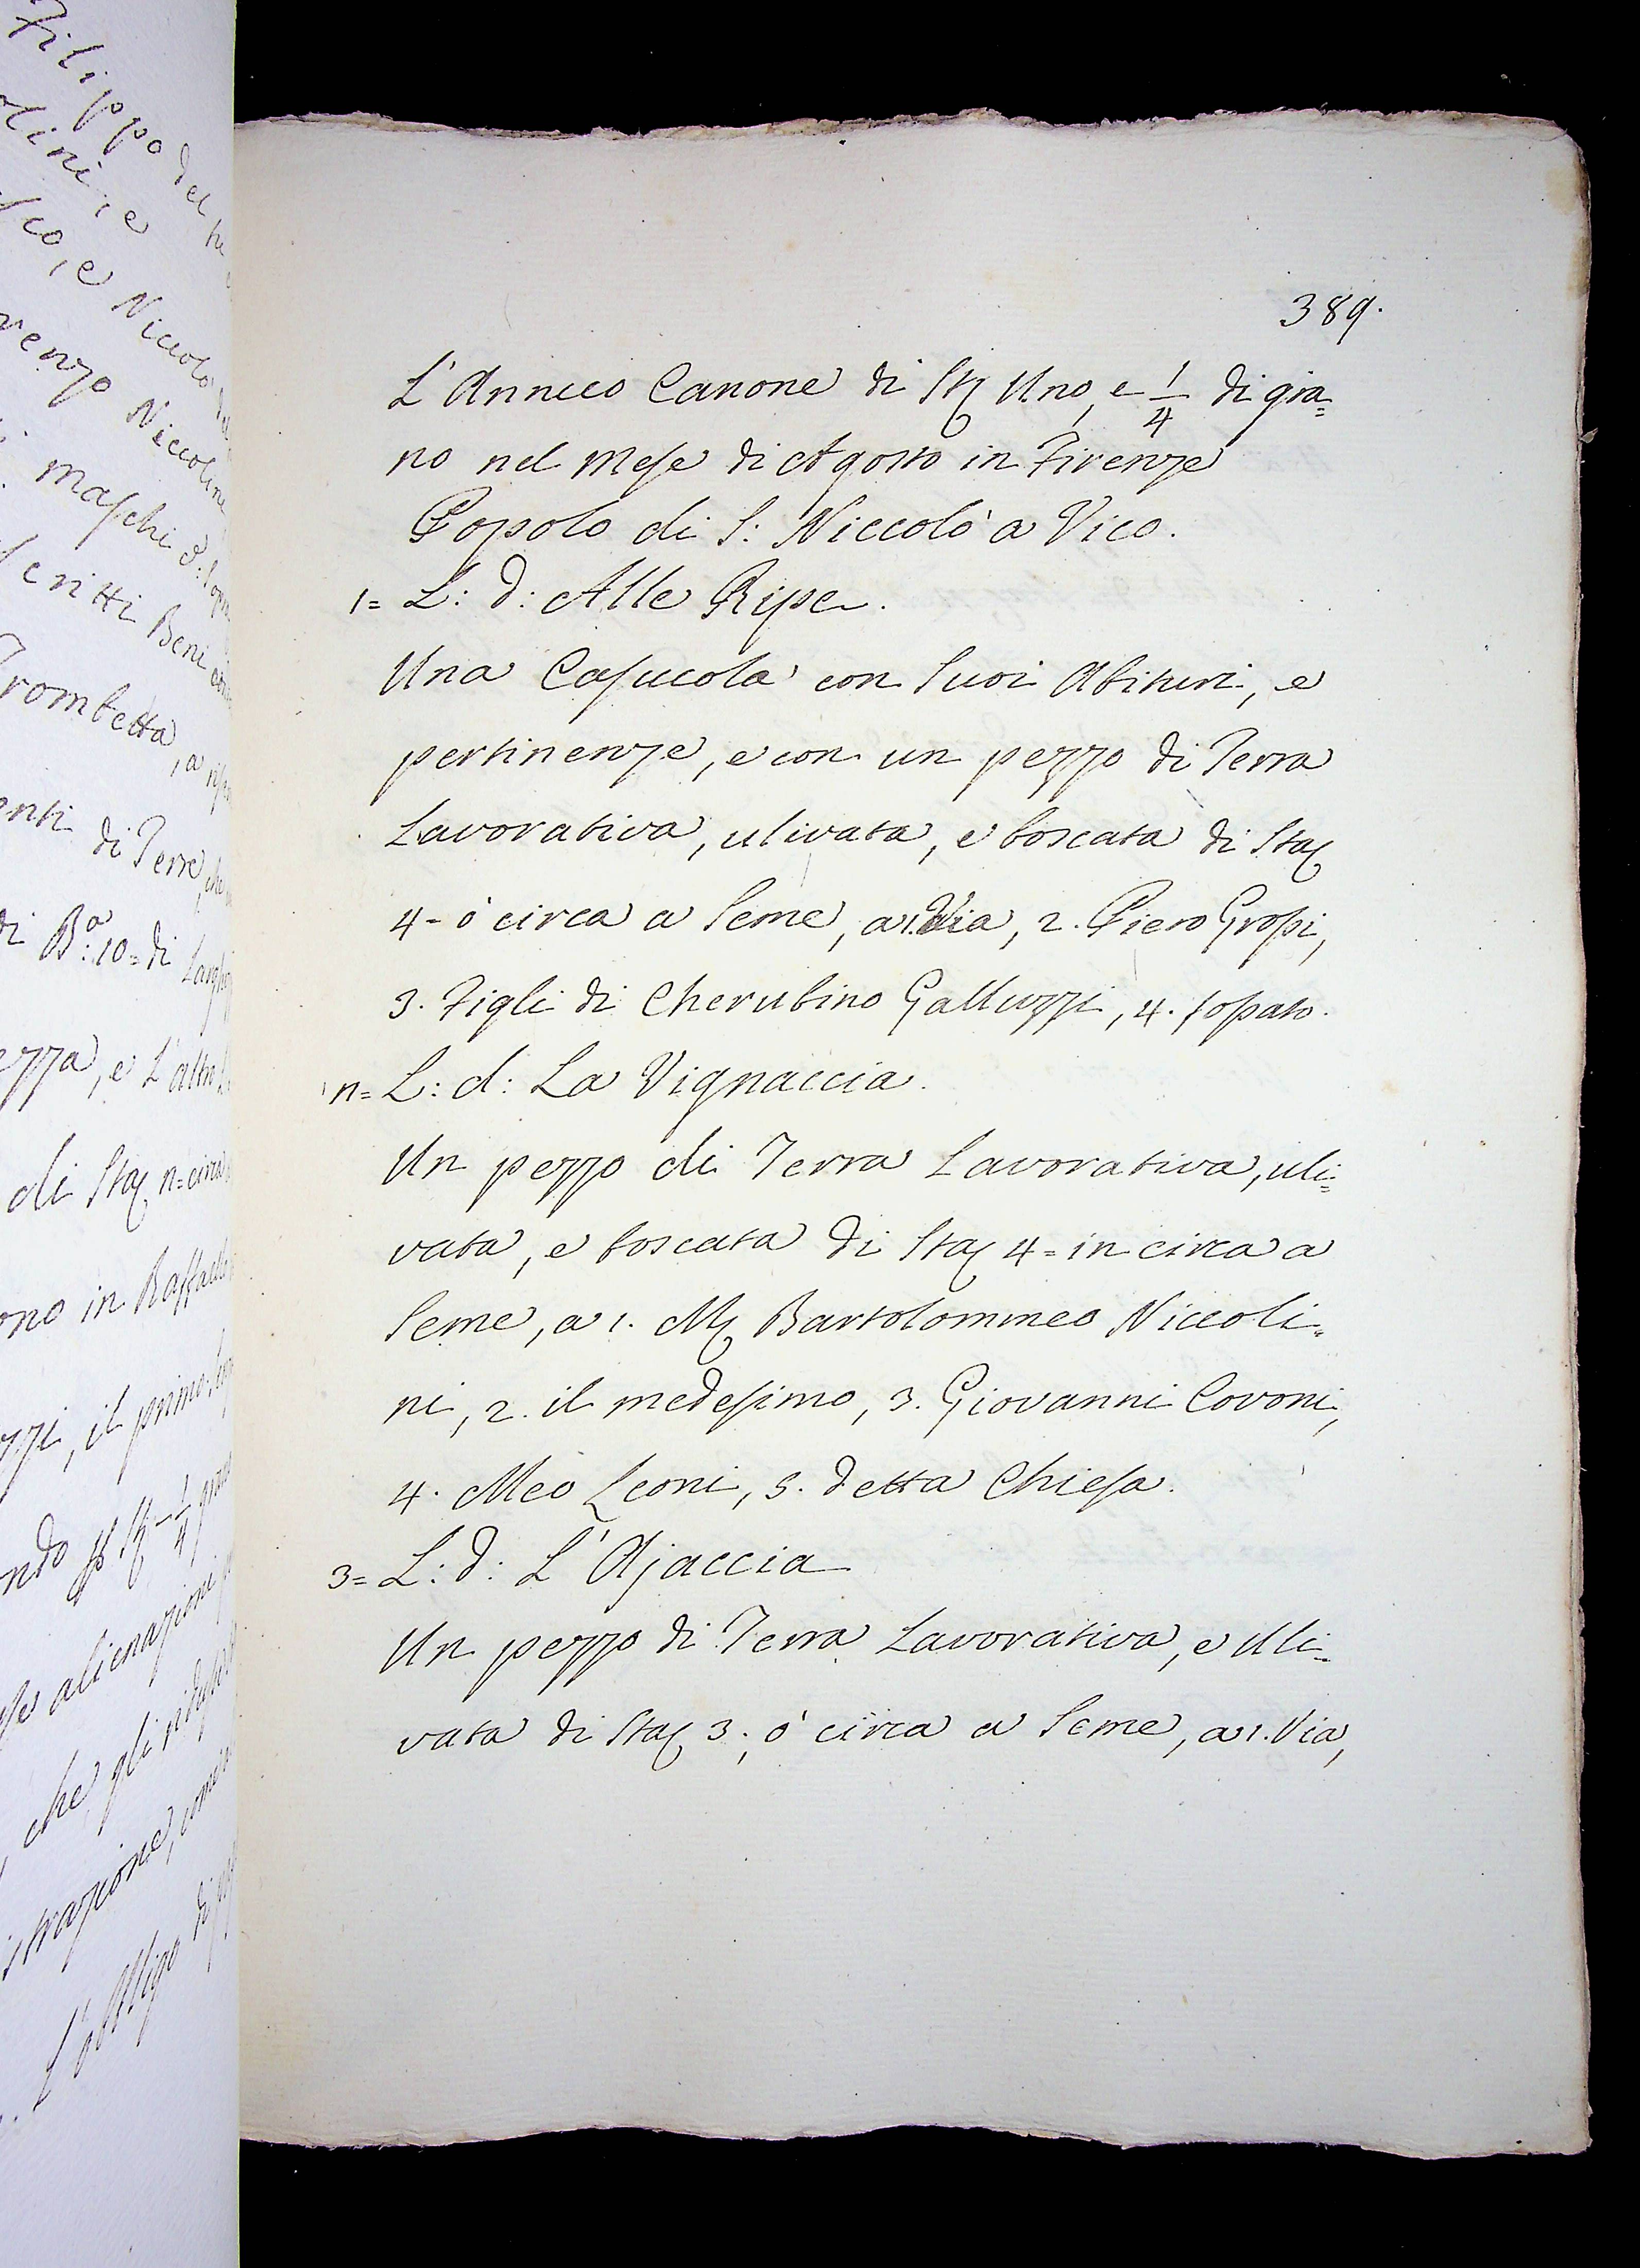 389.
L'Annuo Canone di Sta Uno, e 1/4 di gra=
no nel Mese di Agosto in Firenze
Popolo di S: Niccolò a Vico.
1= L: d: Alle Ripe.
Una Casucola con Suoi Abituri, e
pertinenze, e con un pezzo di Terra
Lavorativa, ulivata, e boscata di Sta
4- ò circa a Seme, a 1. Via, 2. Piero Grossi,
3. Figli di Cherubino Galluzzi, 4. fossato.
n= L: d: La Vignaccia.
Un pezzo di Terra Lavorativa, uli=
vata, e boscata di Sta 4= in circa a
Seme, a 1. M Bartolommeo Niccoli=
ni, 2. il medesimo, 3. Giovanni Covoni,
4. Meo Leoni, 5. detta Chiesa.
3= L: d: L'Ajaccia
Un pezzo di Terra Lavorativa, e Uli=
vata di Sta 3; ò circa a Seme, a 1. Via,
Filippo del
lini, e
sco, e Niccolò
renzo Niccoline
maschi
scritti Beni
Trombetta, a
enti di Terre, che
di B.a 10= di Largh
ezza, e L'altro
di Sta n= circa
ono in Raffaello
ozzi, il primo
ndo 1/4
alienazioni
, che gli
strazione, come
L'obbligo di